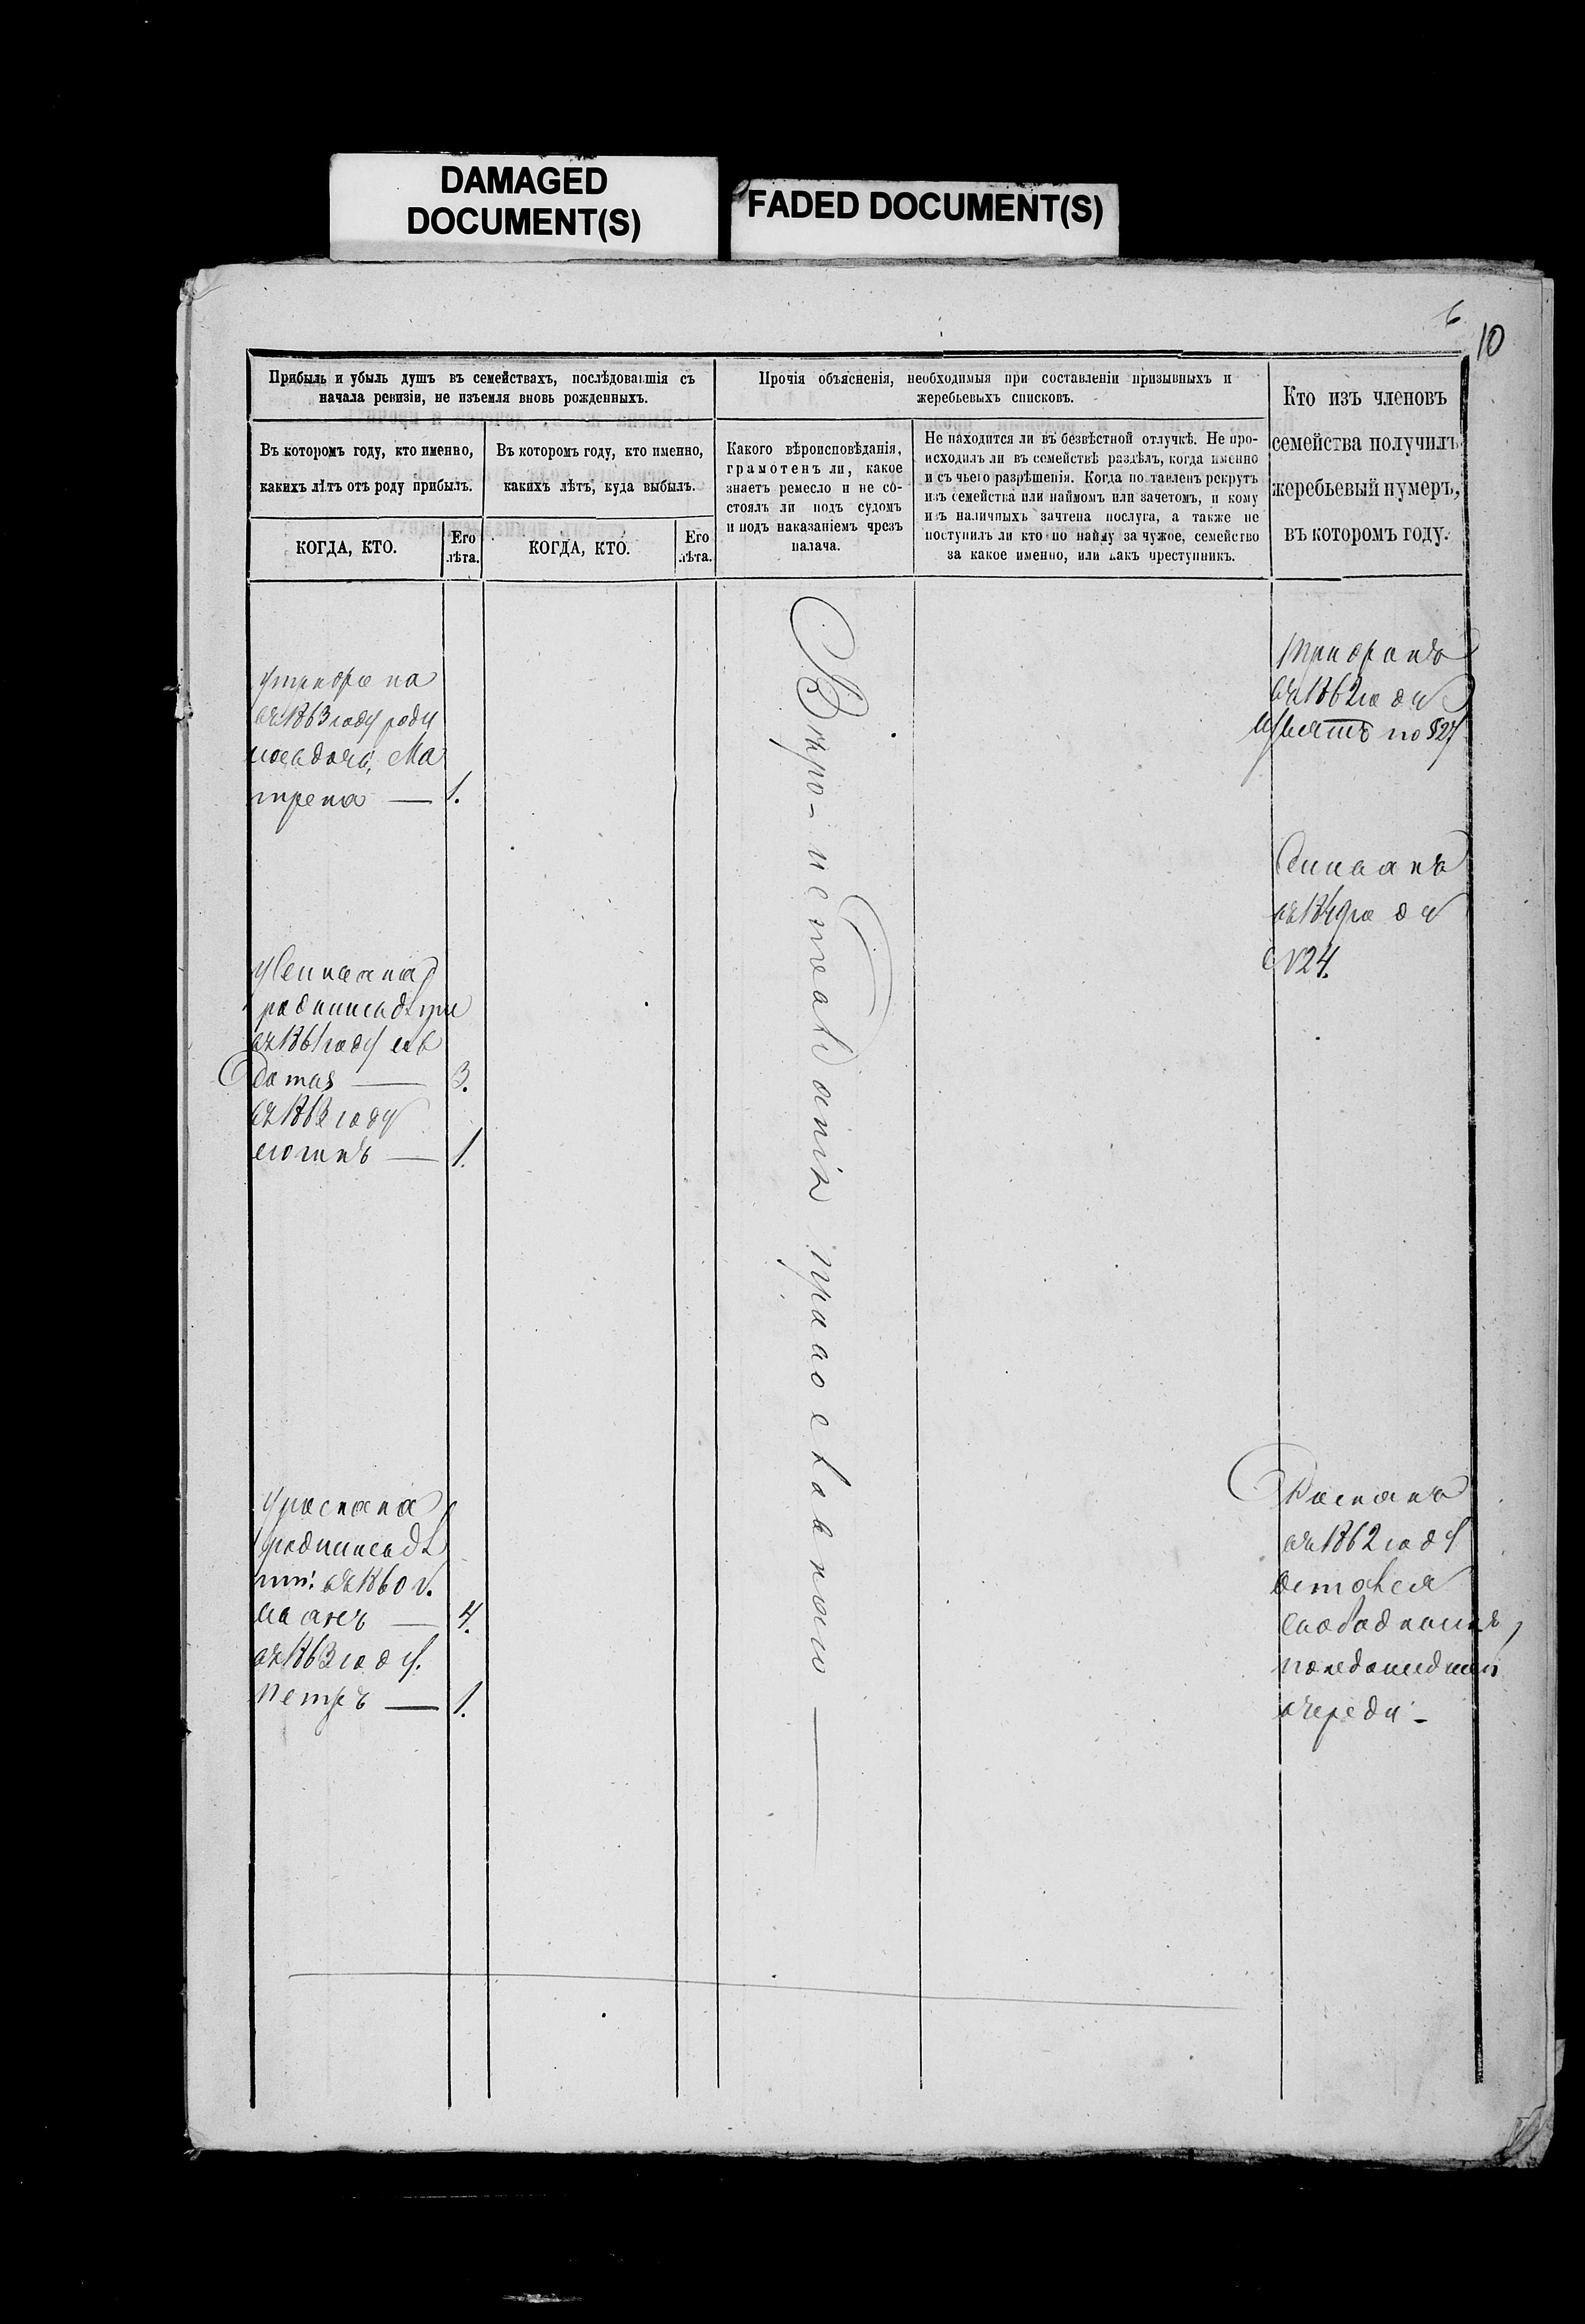 DAMAGED
DOCUMENT(S)
FADED DOCUMENT(S)
6
10
Прибыль и убыль душъ въ семействахъ, послѣдовавшія съ
начала ревизіи, не изъемля вновь рожденныхъ.
Прочія объясненія, необходимыя при составленіи призывныхъ и
жеребьевыхъ списковъ.
Кто изъ членовъ
семейства получилъ
жеребьевый нумеръ,
въ которомъ году.
Въ которомъ году, кто именно,
какихъ лѣтъ отъ роду прибылъ.
Въ которомъ году, кто именно,
какихъ лѣтъ, куда выбылъ.
Какого вѣроисповѣданія,
грамотенъ ли, какое
знаетъ ремесло и не со-
стоялъ ли подъ судомъ
и подъ наказаніемъ чрезъ
палача.
Не находится ли въ безвѣстной отлучкѣ. Не про-
исходилъ ли въ семействѣ раздѣлъ, когда именно
и съ чьего разрѣшенія. Когда поставленъ рекрутъ
изъ семейства или наймомъ или зачетомъ, и кому
изъ наличныхъ зачтена послуга, а также не
поступилъ ли кто по найму за чужое, семейство
за какое именно, или какъ преступникъ.
КОГДА, КТО.
Его
лѣта.
КОГДА, КТО.
Его
лѣта.
у трифона
въ 1863 году роди
лось дочь, Ма
трена — 1.
родились дѣти
въ 1861 году
3.
въ 1863 году
1.
родились дѣ
ти: въ 1860 г.
4.
въ 1863 году.
Петръ — 1.
Вѣро-исповѣданія православнаго
трифонъ
въ 1862 году
изъятъ по § 27
въ 1849 году
№ 24.
въ 1862 году
остался
свободнымъ,
понедошедшей
очереди